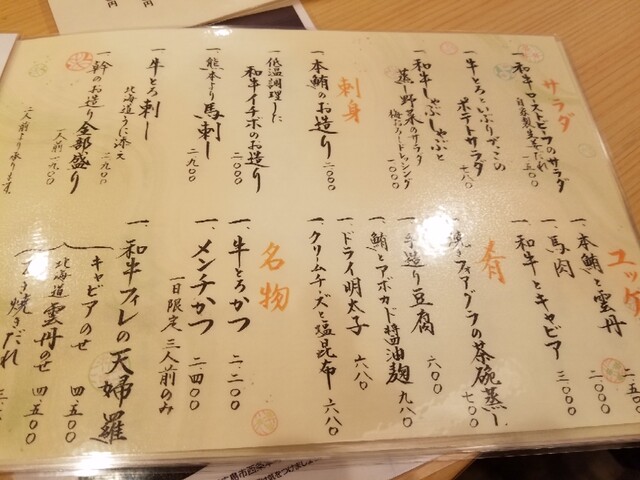 サラダ
一、和牛ローストビーフのサラダ
自家製生姜だれ
一五〇〇
一、牛とろといぶりがっこの
ポテトサラダ
七八〇
一、和牛しゃぶしゃぶと
蒸し野菜のサラダ
梅だれドレッシング
一〇〇〇
刺身
一、本鮪のお造り
二〇〇〇
一、低温調理した
和牛イチボのお造り
二〇〇〇
一、熊本より馬刺し
二九〇〇
一、牛とろ刺し
北海道うに添え
二九〇〇
一、幹のお造り全部盛り
一人前一九〇〇
二人前より承ります。
ユッケ
一、本鮪と雲丹
二五〇
一、馬肉
一、和牛とキャビア
三〇〇〇
肴
焼きフォアグラの茶碗蒸し
七〇〇
一、手造り豆腐
六〇〇
一、鮪とアボカド醤油麹
九八〇
一、ドライ明太子
六八〇
一、クリームチーズと塩昆布
六八〇
名物
一、牛とろかつ
二、二〇〇
一、メンチかつ
二、四〇〇
一日限定 三人前のみ
一、和牛フィレの天婦羅
キャビアのせ
四五〇〇
北海道雲丹のせ
四五〇〇
き焼きだれ
円
円